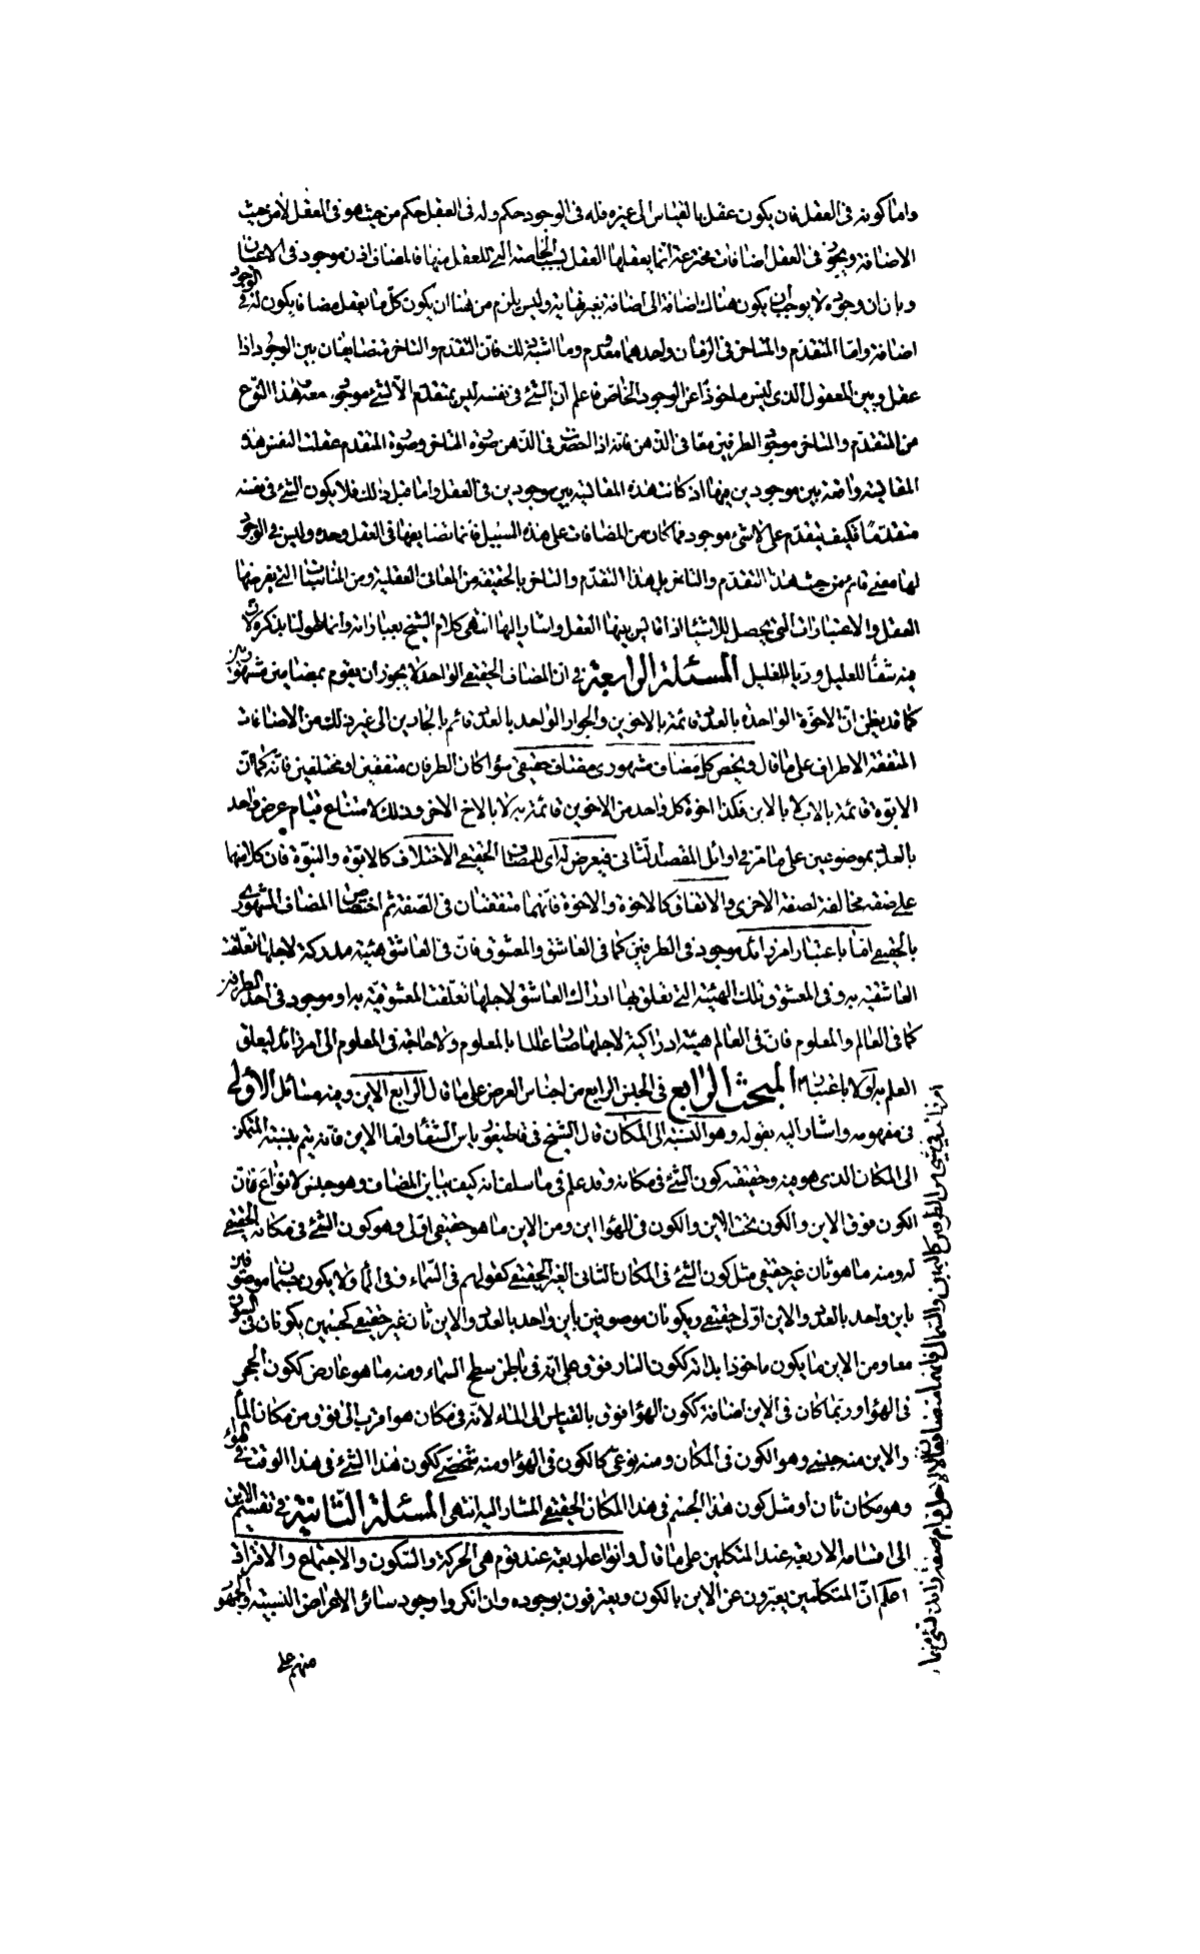 واما كونه فى العقل فان يكون عقل بالقياس الى غيره فله فى الوجود حكم وله فى العقل حكم من حيث هو فى العقل لا من حيث
الاضافة ويجوز فى العقل اضافات مخترعة انما يعقلها العقل بسبب الخاصة التى للعقل منها فالمضاف اذن موجود فى الاعيان
وبان ان وجوده لا يوجب ان يكون هناك اضافة الى اضافة بغير نهاية وليس يلزم من هذا ان يكون كل ما يعقل مضافا يكون له فى الوجود
اضافة واما المتقدم والمتاخر فى الزمان واحدهما معدوم وما اشبه ذلك فان التقدم والتاخر متضايفان بين الوجود اذا
عقل وبين المعقول الذى ليس ماخوذا عن الوجود الخاص فاعلم ان الشئ فى نفسه ليس بمتقدم الا لشئ موجود معه وهذا النوع
من المتقدم والمتاخر موجود للطرفين معا فى الذهن فانه اذا احضر فى الذهن صورة المتاخر وصورة المتقدم عقلت النفس هذه
المقايسة واقعة بين موجودين فيها اذ كانت هذه المقايسة بين موجودين فى العقل واما قبل ذلك فلا يكون الشئ فى نفسه
متقدما فكيف يتقدم على لا شئ موجود فما كان من المضافات على هذه السبيل فانما تضايفها فى العقل وحده وليس فى الوجود
لها معنى قائم من حيث هذا التقدم والتاخر بل هذا التقدم والتاخر بالحقيقة من المعانى العقلية ومن المناسبات التى يفرضها
العقل والاعتبارات التى يحصل للاشياء اذا قايس بينها العقل واشار اليها انتهى كلام الشيخ بعباراته وانما طولنا بذكره لان
فيه شفاء للعليل وريا للغليل المسئلة الرابعة فى ان المضاف الحقيقى الواحد لا يجوز ان يقوم بمضافين مشهوريين
كما قد يظن ان الاخوة الواحدة بالعدد قائمة بالاخوين والجوار الواحد بالعدد قائم بالجارين الى غير ذلك من الاضافات
المتفقة الاطراف على ما قال ويخص كل مضاف مشهورى مضاف حقيقى سواء كان الطرفان متفقين او مختلفين فانه كما ان
الابوة قائمة بالاب لا بالابن فكذا اخوة كل واحد من الاخوين قائمة به لا بالاخ الاخر وذلك لامتناع قيام عرض واحد
بالعدد بموضوعين على ما مر فى اوائل المقصد الثانى فيعرض له اى للمضاف الحقيقى الاختلاف كالابوة والبنوة فان كلا منهما
على صفة مخالفة لصفة الاخرى والاتفاق كالاخوة والاخوة فانهما متفقتان فى الصفة ثم اختصاص المضاف المشهورى
بالحقيقى اما باعتبار امر زائد موجود فى الطرفين كما فى العاشق والمعشوق فان فى العاشق هيئة مدركة لاجلها تعلقت
العاشقية به وفى المعشوق تلك الهيئة التى تعلق بها ادراك العاشق لاجلها تعلقت المعشوقية به او موجود فى احد الطرفين
كما فى العالم والمعلوم فان فى العالم هيئة ادراكية لاجلها صار عالما بالمعلوم ولا حاجة فى المعلوم الى امر زائد ليعلق
العلم به او لا باعتبار المبحث الرابع فى الجنس الرابع من اجناس العرض على ما قال الرابع الاين وفيه مسائل الاولى
فى مفهومه واشار اليه بقوله وهو النسبة الى المكان قال الشيخ فى قاطيغورياس الشفاء واما الاين فانه يتم بنسبة المتمكن
الى المكان الذى هو فيه وحقيقته كون الشئ فى مكانه وقد علم فى ما سلف انه كيف يباين المضاف وهو جنس لانواع فان
الكون فوق الاين والكون تحت الاين والكون فى الهواء اين ومن الاين ما هو حقيقى اولى وهو كون الشئ فى مكانه الحقيقى
له ومنه ما هو ثان غير حقيقى مثل كون الشئ فى المكان الثانى الغير الحقيقى كقولهم فى السماء وفى الماء ولا يكون جسمان موصوفين
باين واحد بالعدد والاين اولى حقيقى ويكونان موصوفين باين واحد بالعدد والاين ثان غير حقيقى كجسمين يكونان فى السوق
معا ومن الاين ما يكون ماخوذا بذاته ككون النار فوق على انه فى باطن سطح السماء ومنه ما هو عارض ككون الحجر
فى الهواء وربما كان فى الاين اضافة ككون الهواء فوق بالقياس الى الماء لانه فى مكان هو اقرب الى فوق من مكان الماء
والاين منه جنسى وهو الكون فى المكان ومنه نوعى كالكون فى الهواء ومنه شخصى ككون هذا الشئ فى هذا الوقت فى الهواء
وهو مكان ثان او مثل كون هذا الجسم فى هذا المكان الحقيقى المشار اليه انتهى المسئلة الثانية فى تقسيم الاين
الى اقسامه الاربعة عند المتكلمين على ما قال وانواعه اربعة عند قوم هى الحركة والسكون والاجتماع والافتراق
اعلم ان المتكلمين يعبرون عن الاين بالكون ويعترفون بوجوده وان انكروا وجود سائر الاعراض النسبية والجمهور
منهم على
امر زائد فى شئ من الطرفين كاليمين والشمال فانهما متضايفان لا لاجل قيام صفة زائدة بشئ منهما